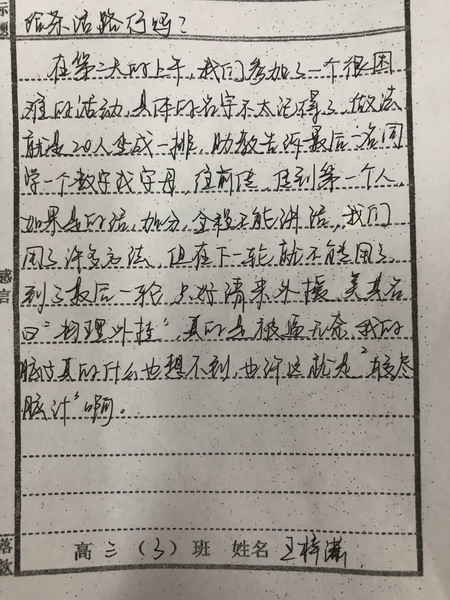 示题
给条活路行吗？
在第二天的上午，我们参加了一个很困
难的活动，具体的名字不太记得了，做法
就是20人坐成一排，助教告诉最后一名同
学一个数字或字母，往前传，传到第一个人，
如果是的话，加分，全程不能讲话，我们
用了许多方法，但在下一轮就不能用了
到了最后一轮，只好请来外援，美其名
曰"物理外挂"，真的是被逼无奈，我的
脑汁真的什么也想不到，也许这就是"绞尽
脑汁"啊。
感言
落款
高三（3）班 姓名 王梓潇